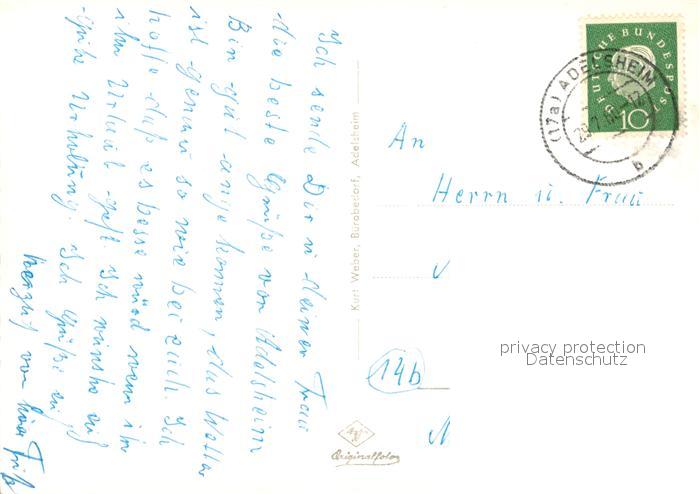 Ich sende Dir u. deiner Frau
die beste Grüße von Adelsheim
Bin gut angekommen, das Wetter
ist genau so wie bei euch. Ich
hoffe daß es besse würd wenn ihr
ihn Urlaub geht. Ich wünsche euch
gute Erholung. Ich grüße euch
herzlig von
Fritz
Kurt Weber, Bürobedarf, Adelsheim
Originalfoto
DEUTSCHE BUNDESPOST
10
(17a) ADELSHEIM
b
An
Herrn u. Frau
14b
privacy protection
Datenschutz